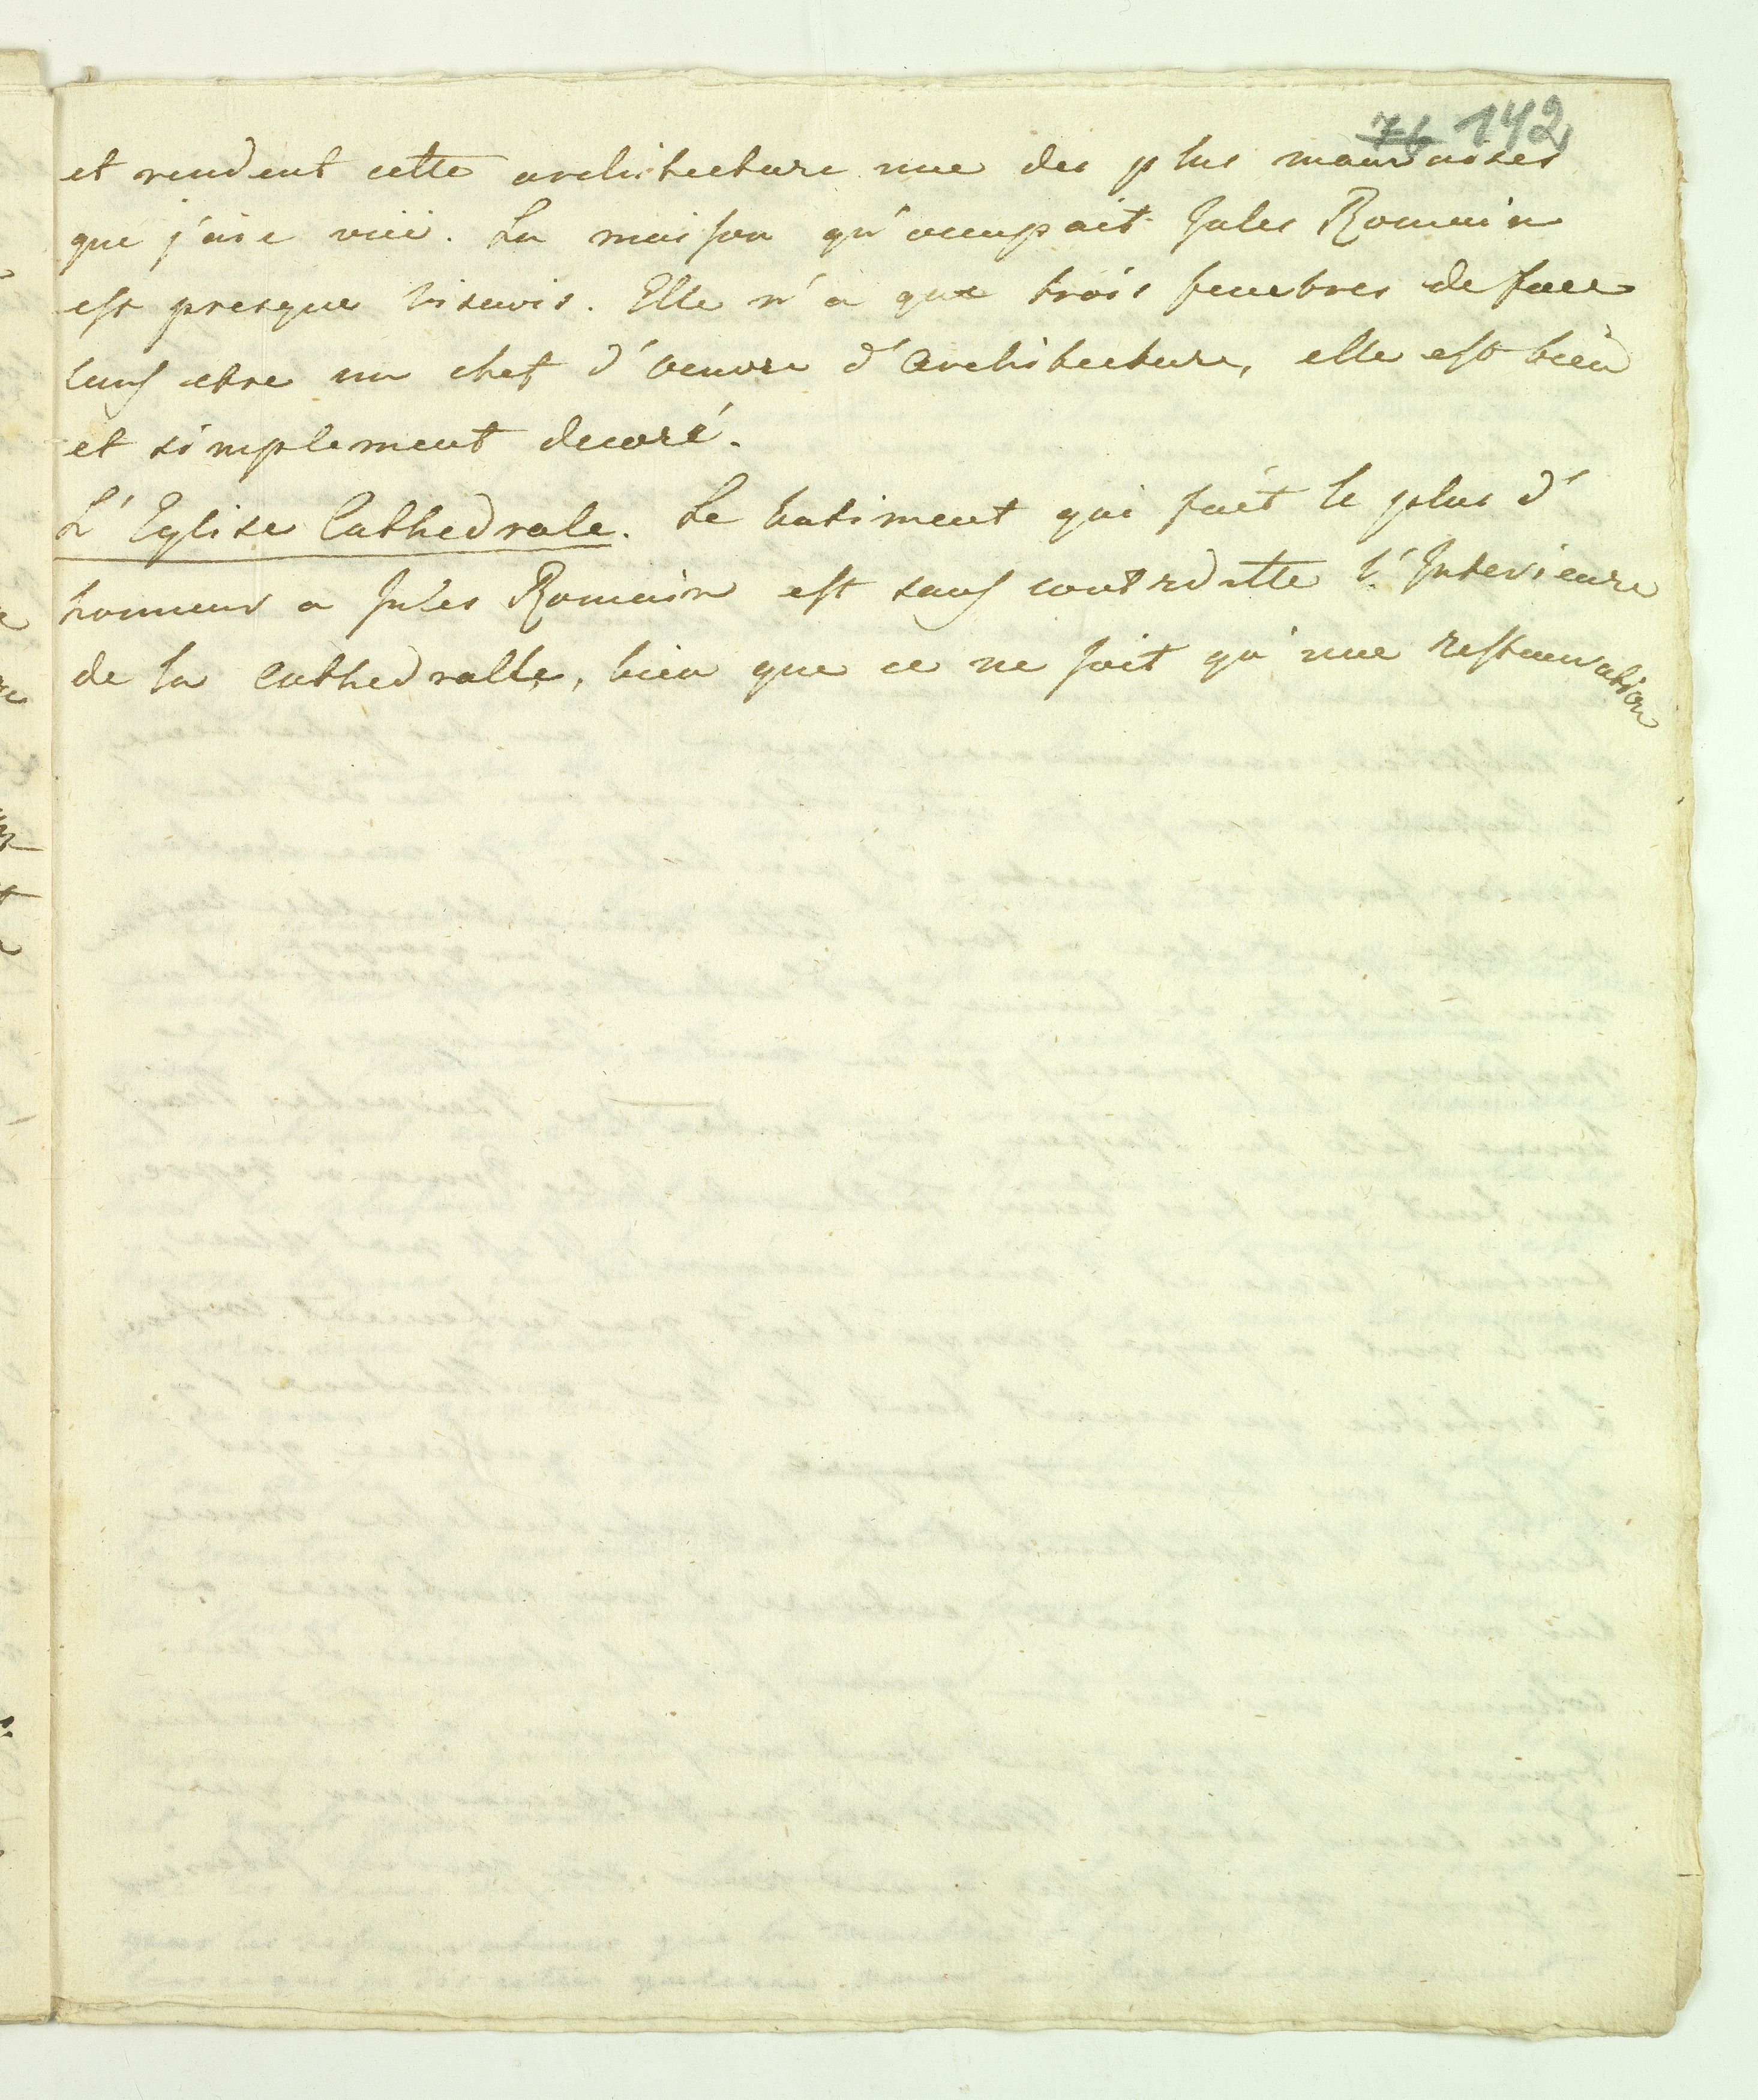 76 142
et rendent cette architecture une des plus mauvaises
que j'aie vüe. La maison qu'occupait Jules Romain
est presque visavis. Elle n'a que trois fenetres de face
sans etre un chef d'oeuvre d'architecture, elle est bien
et simplement decoré.
L'Eglise Cathedrale. Le batiment qui fait le plus d'
honneur a Jules Romain est sans contreditte l'Interieure
de la Cathedralle, bien que ce ne soit qu'une restauration